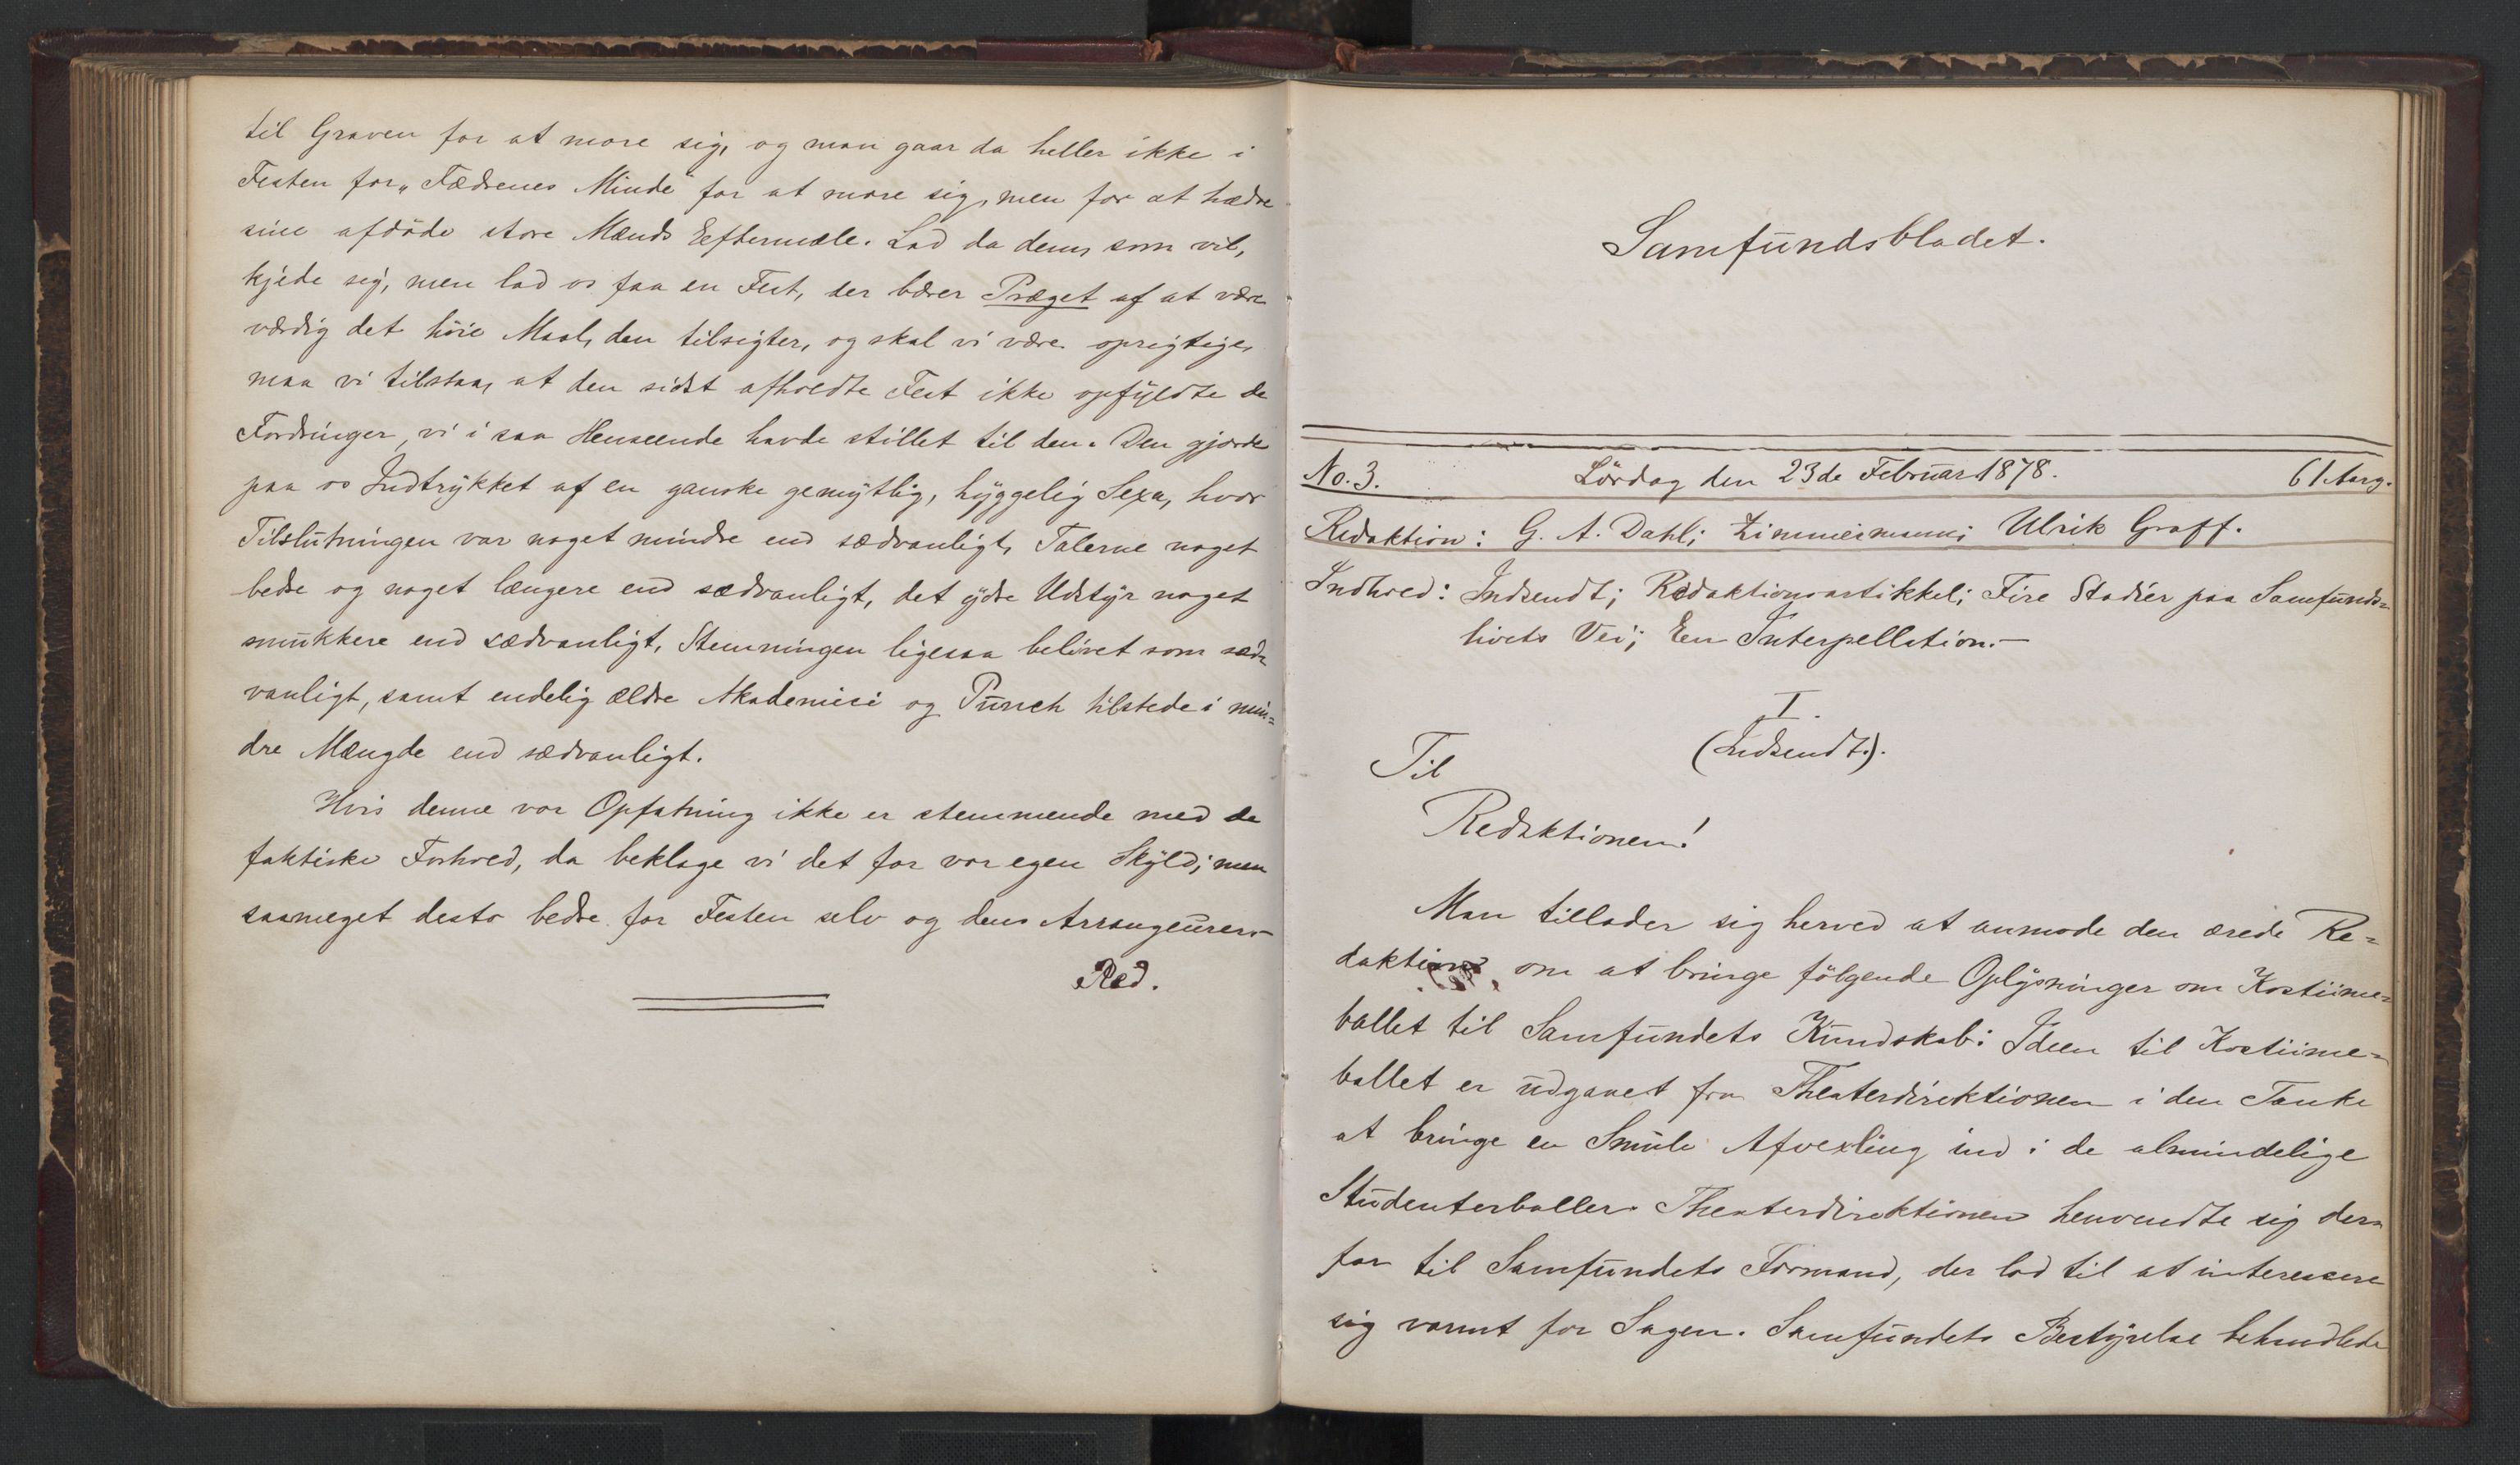 til Graven for at more sig, og man gaar da heller ikke i
Festen for „Fædrenes Minde“ for at more sig, men for at hædre
sine afdöde store Mænds Eeftermæle. Lad da dem, som vil,
kjede sig, men lad os faa en Fest, der bærer Præget af at være
værdig det höie Maal, den tilsigter, og skal vi være oprigtige,
maa vi tilstaa, at den sidst afholdte Fest ikke opfyldte de
Fordringer, vi i saa Henseende havde stillet til den. Den gjorde
paa os Indtrykket af en ganske gemytlig, hyggelig Sexa, hvor
Tilslutningen var noget mindre end sædvanligt, Talerne noget
bedre og noget længere end sædvanligt, det ydre Udstyr noget
smukkere end sædvanligt, Stemningen ligesaa belivet som sæd-
vanligt, samt endelig ældre Akademici og Punch tilstede i min=
dre Mængde end sædvanligt.
Hvis denne vor Opfatning ikke er stemmende med de
faktiske Forhold, da beklage vi det for vor egen Skyld; men
saameget desto bedre for Festen selv og dens Arrangeurer.
Red.
Samfundsbladet.
No. 3. Lördag den 23de Februar 1878. 61 Aarg.
Redaktion: G. A. Dahl; Zimmermann; Ulrik Graff.
Indhold: Indsendt; Redaktionsartikkel; Fire Stadier paa Samfunds=
livets Vei; En Interpellation.—
I.
(Indsendt.).
Til
Redaktionen!
Man tillader sig herved at anmode den ærede Re=
daktion om at bringe fölgende Oplysninger om Kostüme=
ballet til Samfundets Kundskab: Ideen til Kostüme=
ballet er udgaaet fra Theaterdirektionen i den Tanke
at bringe en Smule Afvexling ind i de almindelige
Studenterballer. Theaterdirektionen henvendte sig der=
for til Samfundets Formand, der lod til at interessere
sig varmt for Sagen. Samfundets Bestyrelse behandlede